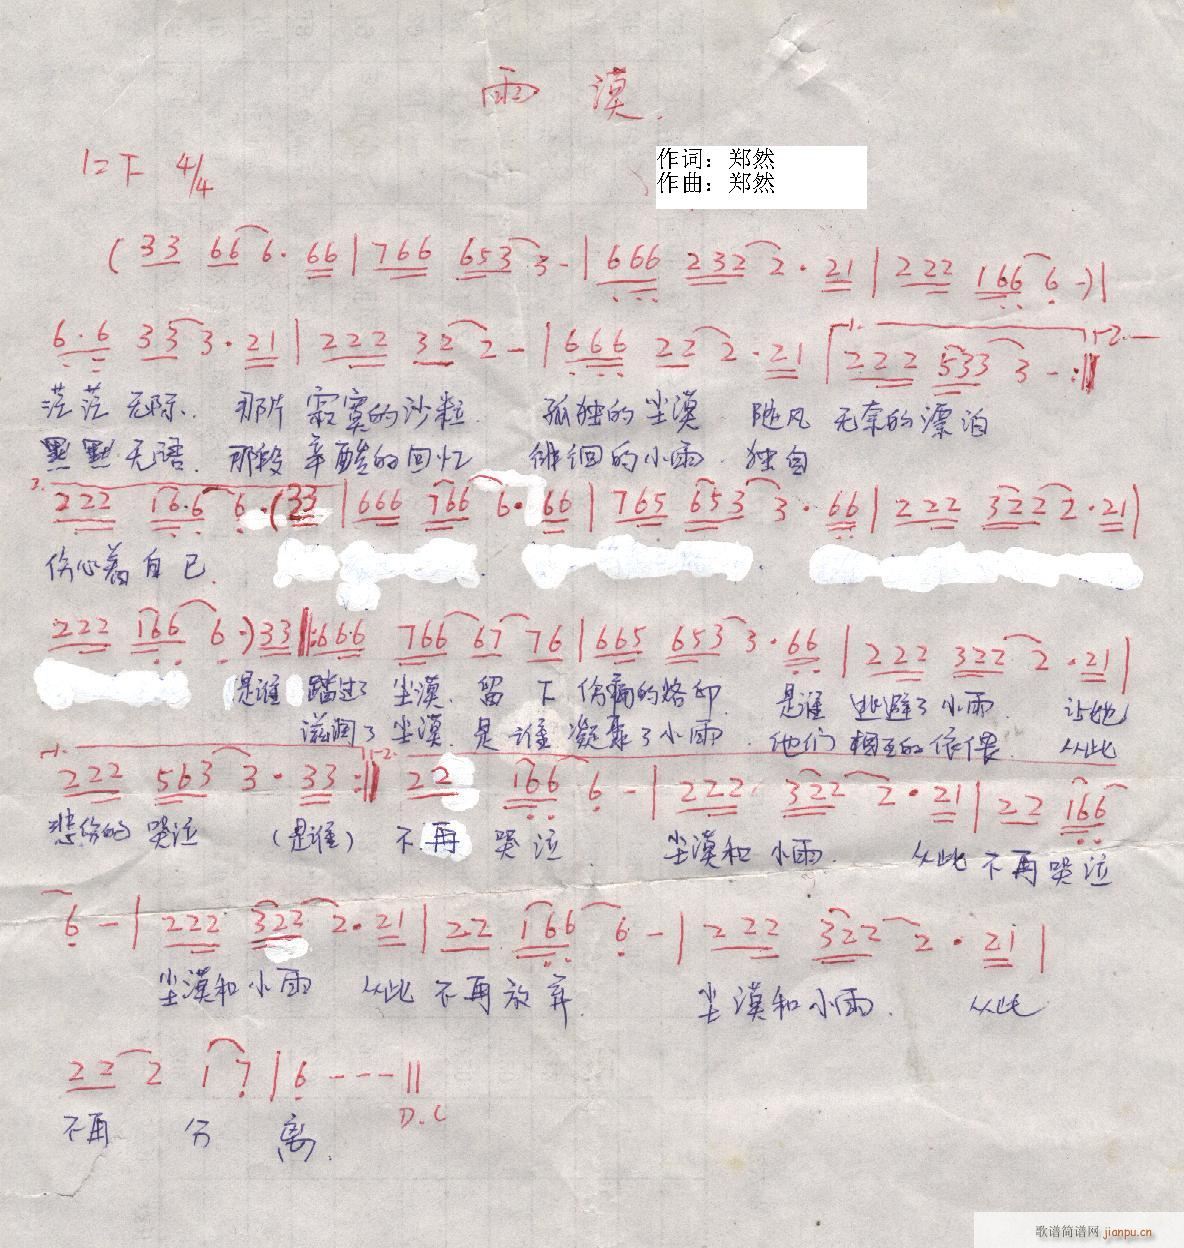 雨漠.
1=下 4/4
作词：郑然
作曲：郑然
(33 666·66|766 6533-|666 2322·21|222 1666-)|
6·6 333·21|222 322-|666 222·21|1.222 5333-:‖2.
茫茫无际. 那片寂寞的沙粒. 孤独的尘漠 随风无奈的漂泊
默默无语. 那段辛酸的回忆 徘徊的小雨. 独自
222 16·66·(33|666 7666·66|765 6533·66|222 3222·21|
伤心着自己.
222 1666·)33‖:666 766 67 76|665 6533·66|222 3222·21|
是谁踏过了尘漠. 留下伤痛的烙印. 是谁逃避了小雨 让她
滋润了尘漠. 是谁凝聚了小雨. 他们相互的依偎. 从此
1.222 5633·33:‖2.22 1666-|222 3222·21|22 166
悲伤的哭泣 (是谁) 不再哭泣. 尘漠和小雨. 从此不再哭泣
6-|222 3222·21|22 1666-|222 3222·21|
尘漠和小雨 从此不再放弃. 尘漠和小雨. 从此
222 17|6---‖
D.C
不再分离.
歌谱简谱网 jianpu.cn